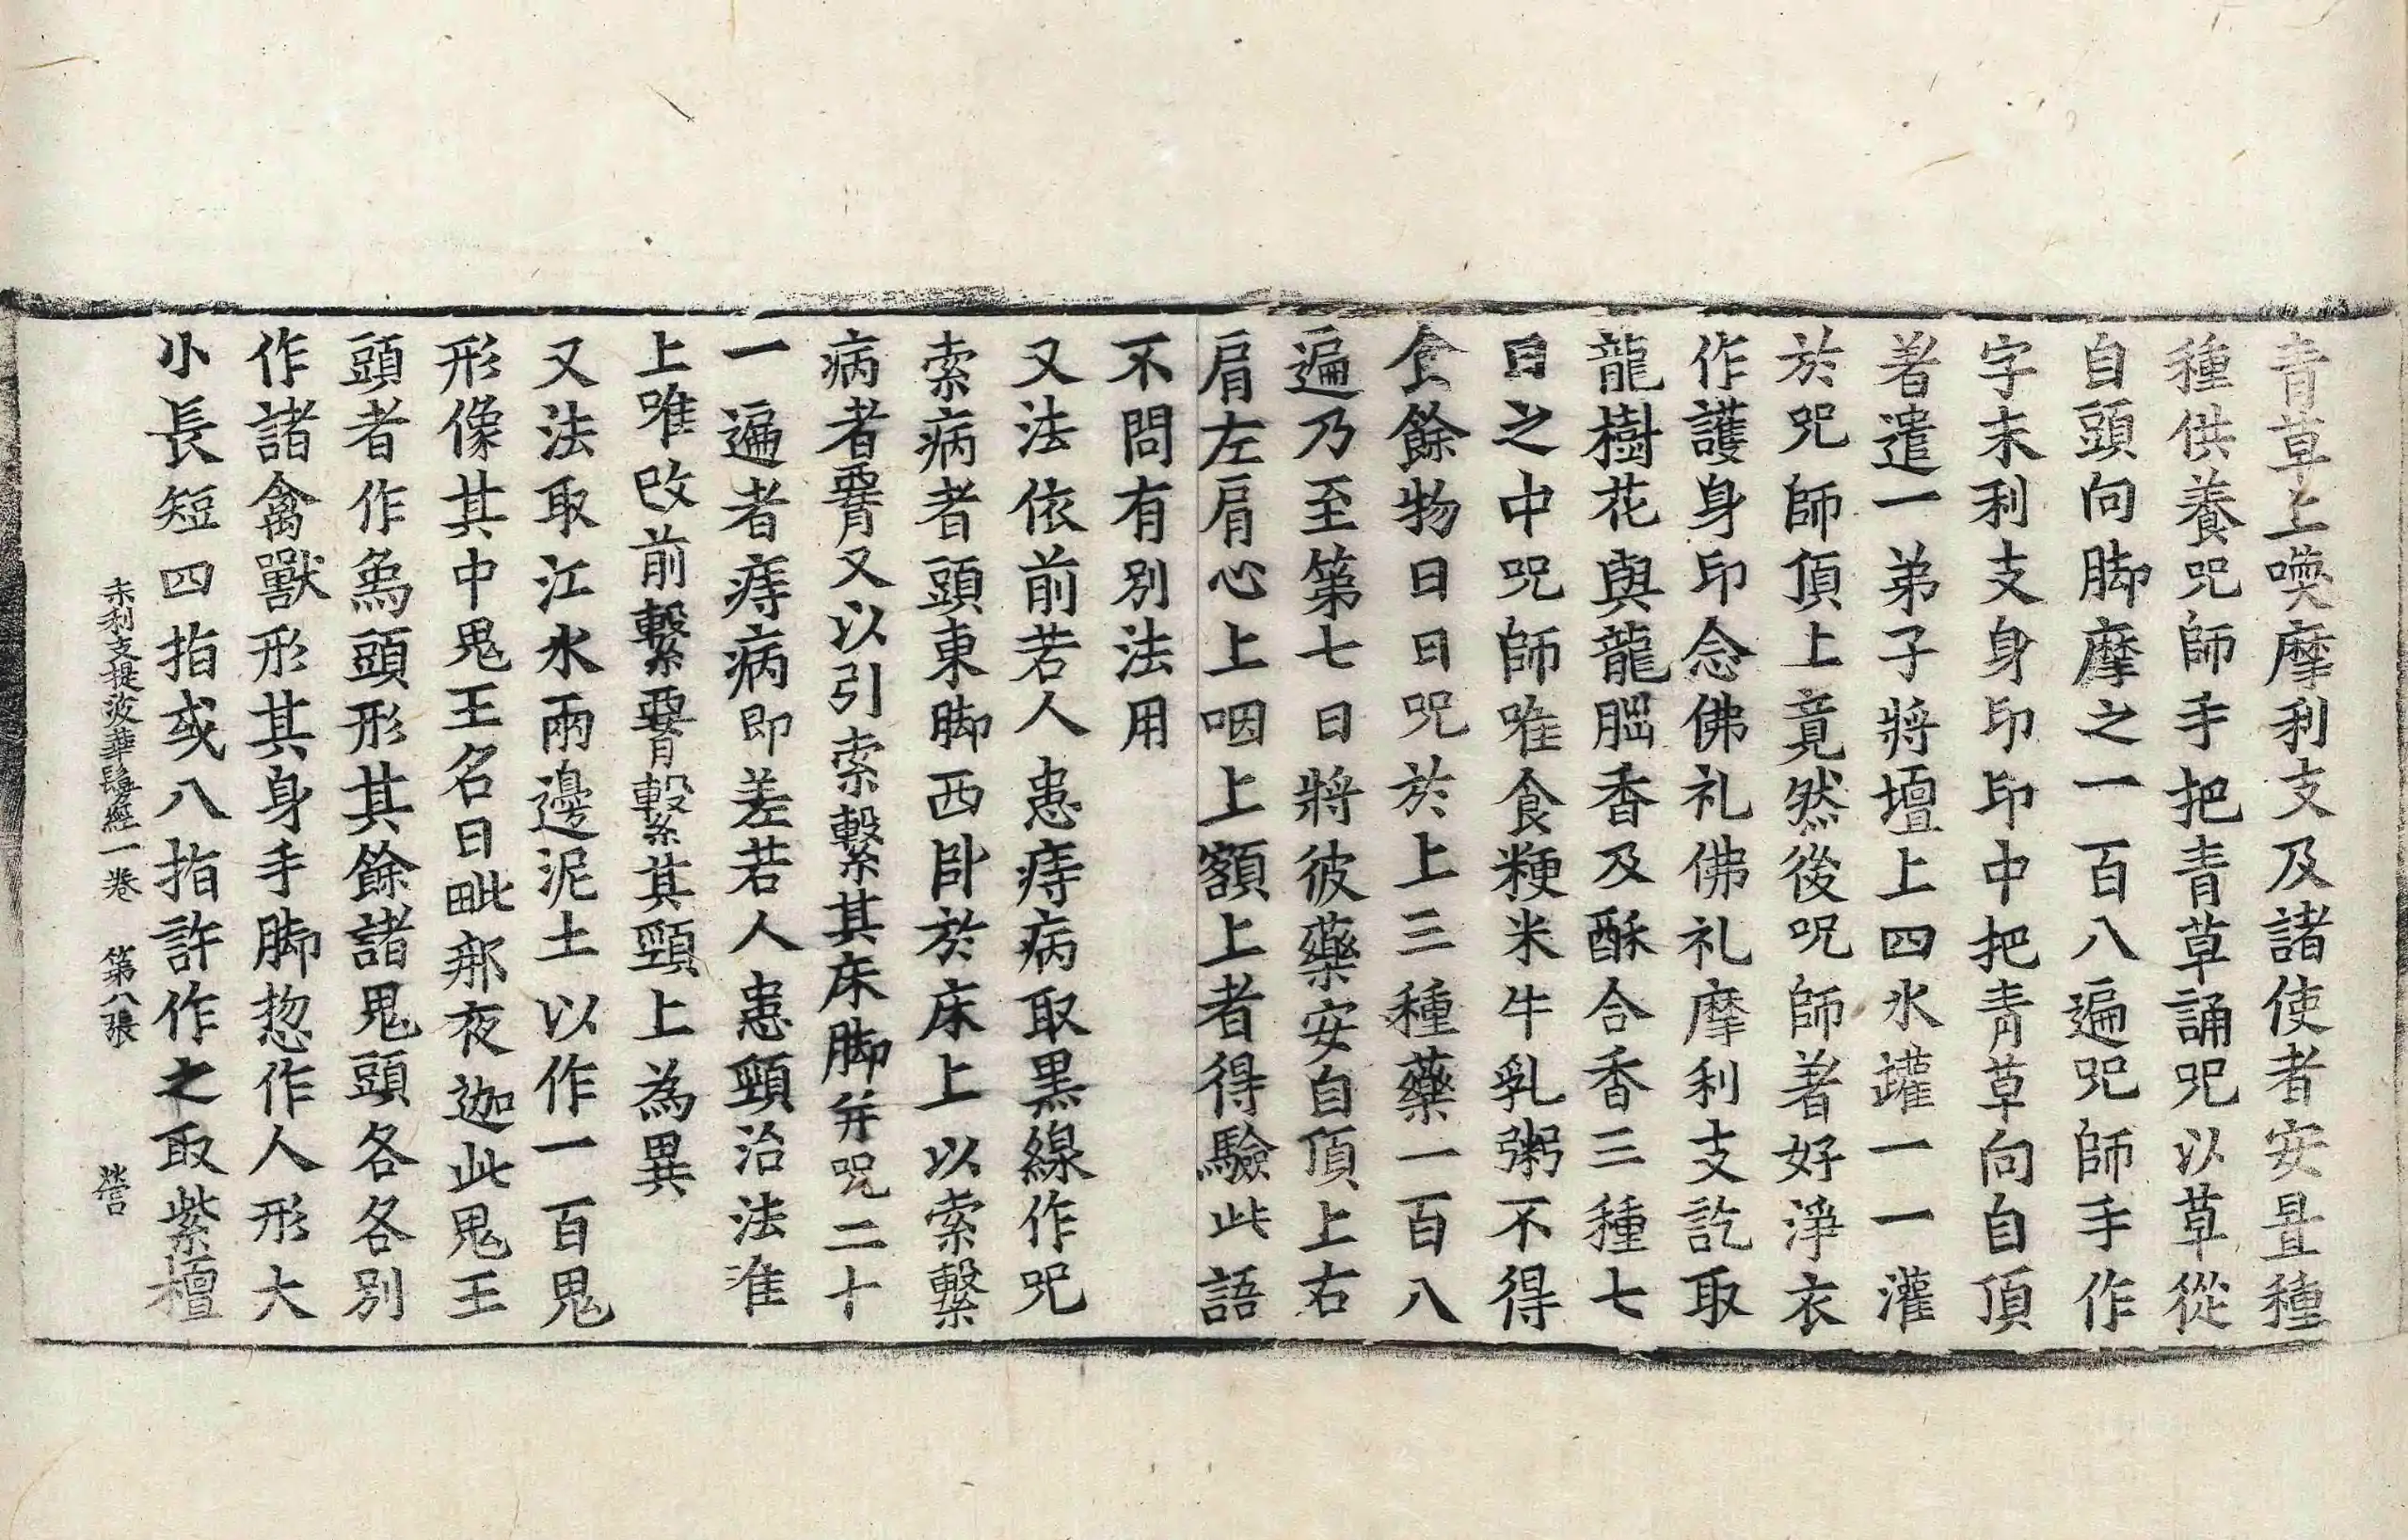 青草上喚摩利支及諸使者安置種
種供養呪師手把青草誦呪以草從
自頭向脚摩之一百八遍呪師手作
字末利支身印印中把青草向自頂
著遣一弟子將壇上四水罐一一灌
於呪師頂上竟然後呪師著好淨衣
作護身印念佛礼佛礼摩利支訖取
龍樹花與龍腦香及酥合香三種七
日之中呪師唯食粳米牛乳粥不得
食餘物日日呪於上三種藥一百八
遍乃至第七日將彼藥安自頂上右
肩左肩心上咽上額上者得驗此語
不問有別法用
又法依前若人患痔病取黒線作呪
索病者頭東脚西卧於床上以索繫
病者䯗又以引索繫其床脚并呪二十
一遍者痔病即差若人患頸治法准
上唯改前繫䯗繫其頸上為異
又法取江水兩邊泥土以作一百鬼
形像其中鬼王名曰毗那夜迦此鬼王
頭者作烏頭形其餘諸鬼頭各各別
作諸禽獸形其身手脚惣作人形大
小長短四指或八指許作之取紫檀
末利支提婆華鬘經一卷 第八張